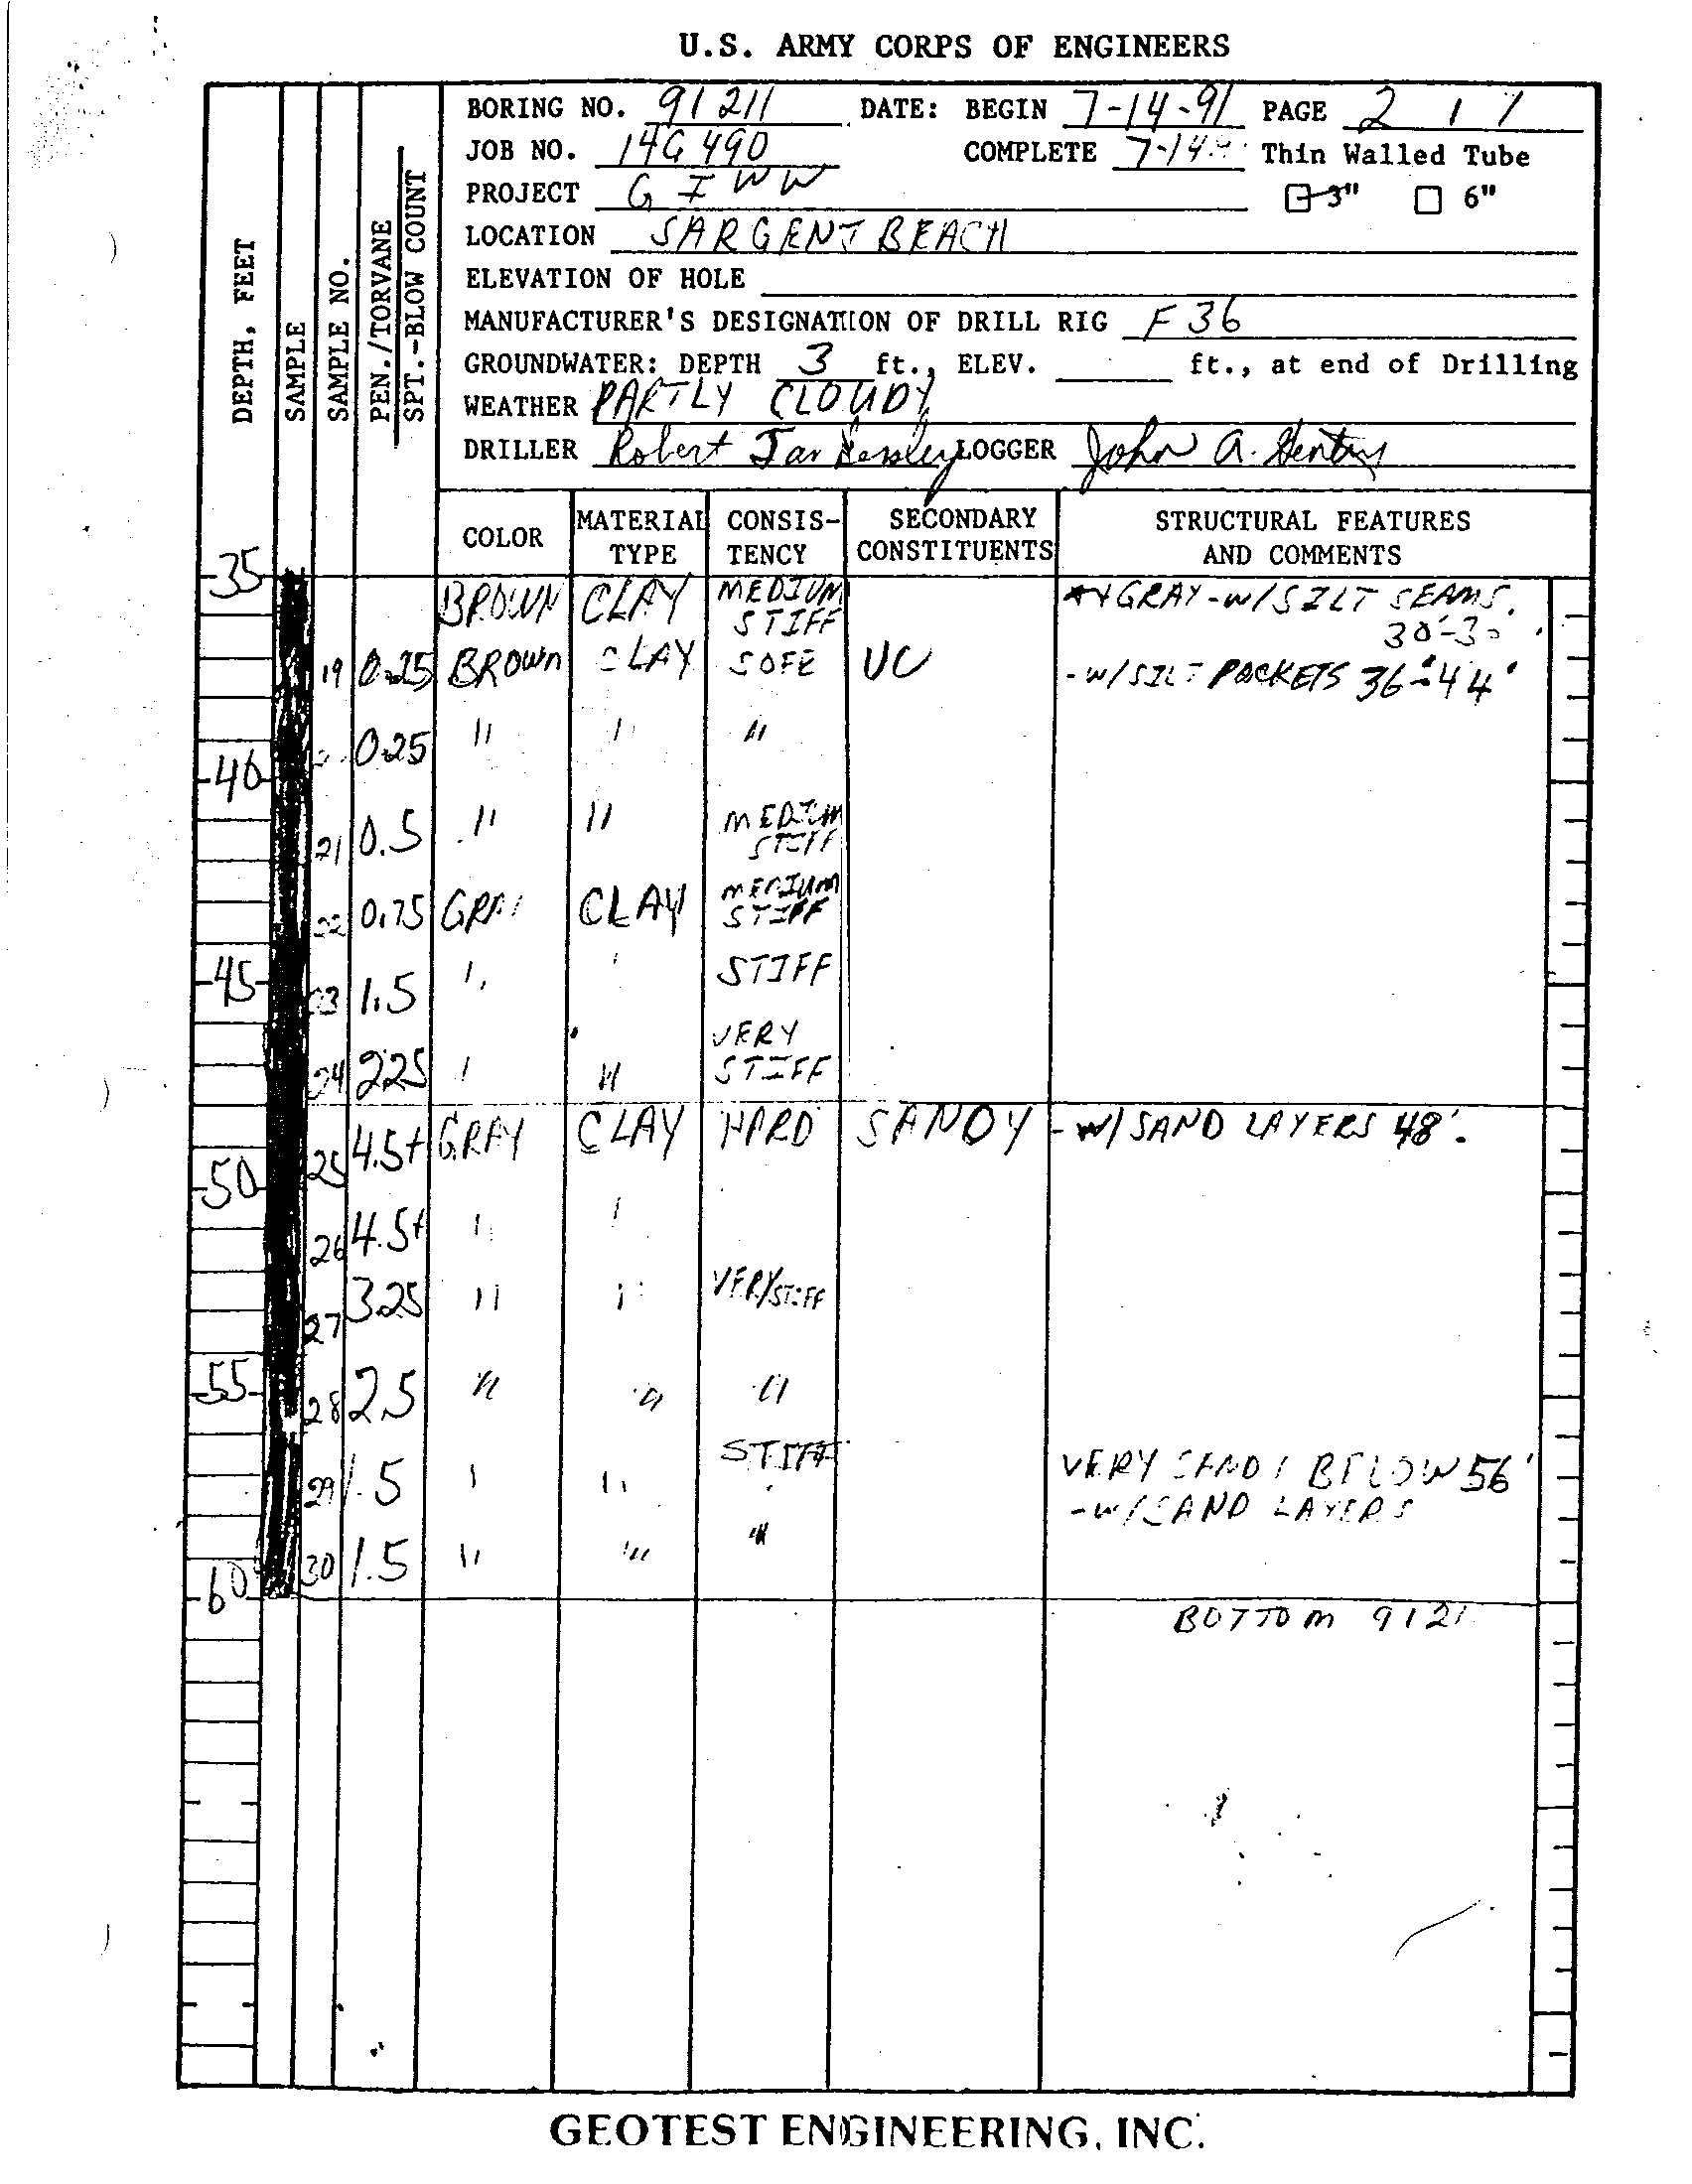 U.S. ARMY CORPS OF ENGINEERS
BORING NO. 91 211 DATE: BEGIN 7-14-91 PAGE 2
JOB NO. 14G 490 COMPLETE 7-14 Thin Walled Tube
PROJECT G I W W 3" 6"
LOCATION SARGENT BEACH
ELEVATION OF HOLE
MANUFACTURER'S DESIGNATION OF DRILL RIG F 36
GROUNDWATER: DEPTH 3 ft., ELEV. ft., at end of Drilling
WEATHER PARTLY CLOUDY
DRILLER Robert LOGGER John A.
DEPTH, FEET
SAMPLE
SAMPLE NO.
PEN./TORVANE
SPT.-BLOW COUNT
COLOR MATERIAL TYPE CONSIS-TENCY SECONDARY CONSTITUENTS STRUCTURAL FEATURES AND COMMENTS
35 BROWN CLAY MEDIUM STIFF GRAY-W/SILT SEAMS.
19 0.25 BROWN CLAY SOFT UC -W/SILT POCKETS 36'-44'
0.25 " " "
40
21 0.5 " " MEDIUM STIFF
22 0.75 GRAY CLAY MEDIUM STIFF
45
23 1.5 " " STIFF
24 2.25 " " VERY STIFF
25 4.5+ GRAY CLAY HARD SANDY -W/SAND LAYERS 48'.
50
26 4.5+ " "
27 3.25 " " VERY STIFF
55
28 2.5 " " "
29 1.5 " " STIFF VERY SANDY BELOW 56'
-W/SAND LAYERS
30 1.5 " " "
60
BOTTOM 9121
GEOTEST ENGINEERING, INC.